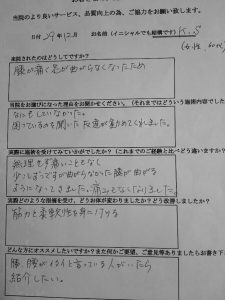 当院のより良いサービス、品質向上の為、ご協力をお願い致します。
日付 29年12月 お名前（イニシャルでも結構です）K.S
(女性 60代)
来院されたのはどうしてですか？
膝が痛く足が曲がらなくなったため
当院をお選びになった理由をお聞かせください。（それまではどういう施術内容でした
なにもしていなかった。
困っているのを聞いた友達が勧めてくれました。
実際に施術を受けてみていかがでしたか？（これまでのご経験と比べどう違いますか
無理せず痛いことなく
少しずつですが曲がらなかった膝が曲がる
ようになってきました。痛みもなくなりました。
実際どのような指導を受け、どうお体が変わりましたか？どう改善しましたか？
筋力と柔軟性を身に付ける
どんな方にオススメしたいですか？また何かご要望、ご意見等ありましたらお書き下
膝、腰がイタイと言っている人がいたら
紹介したい。